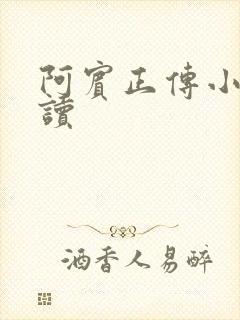 阿賓正傳小
讀
酒香人易醉